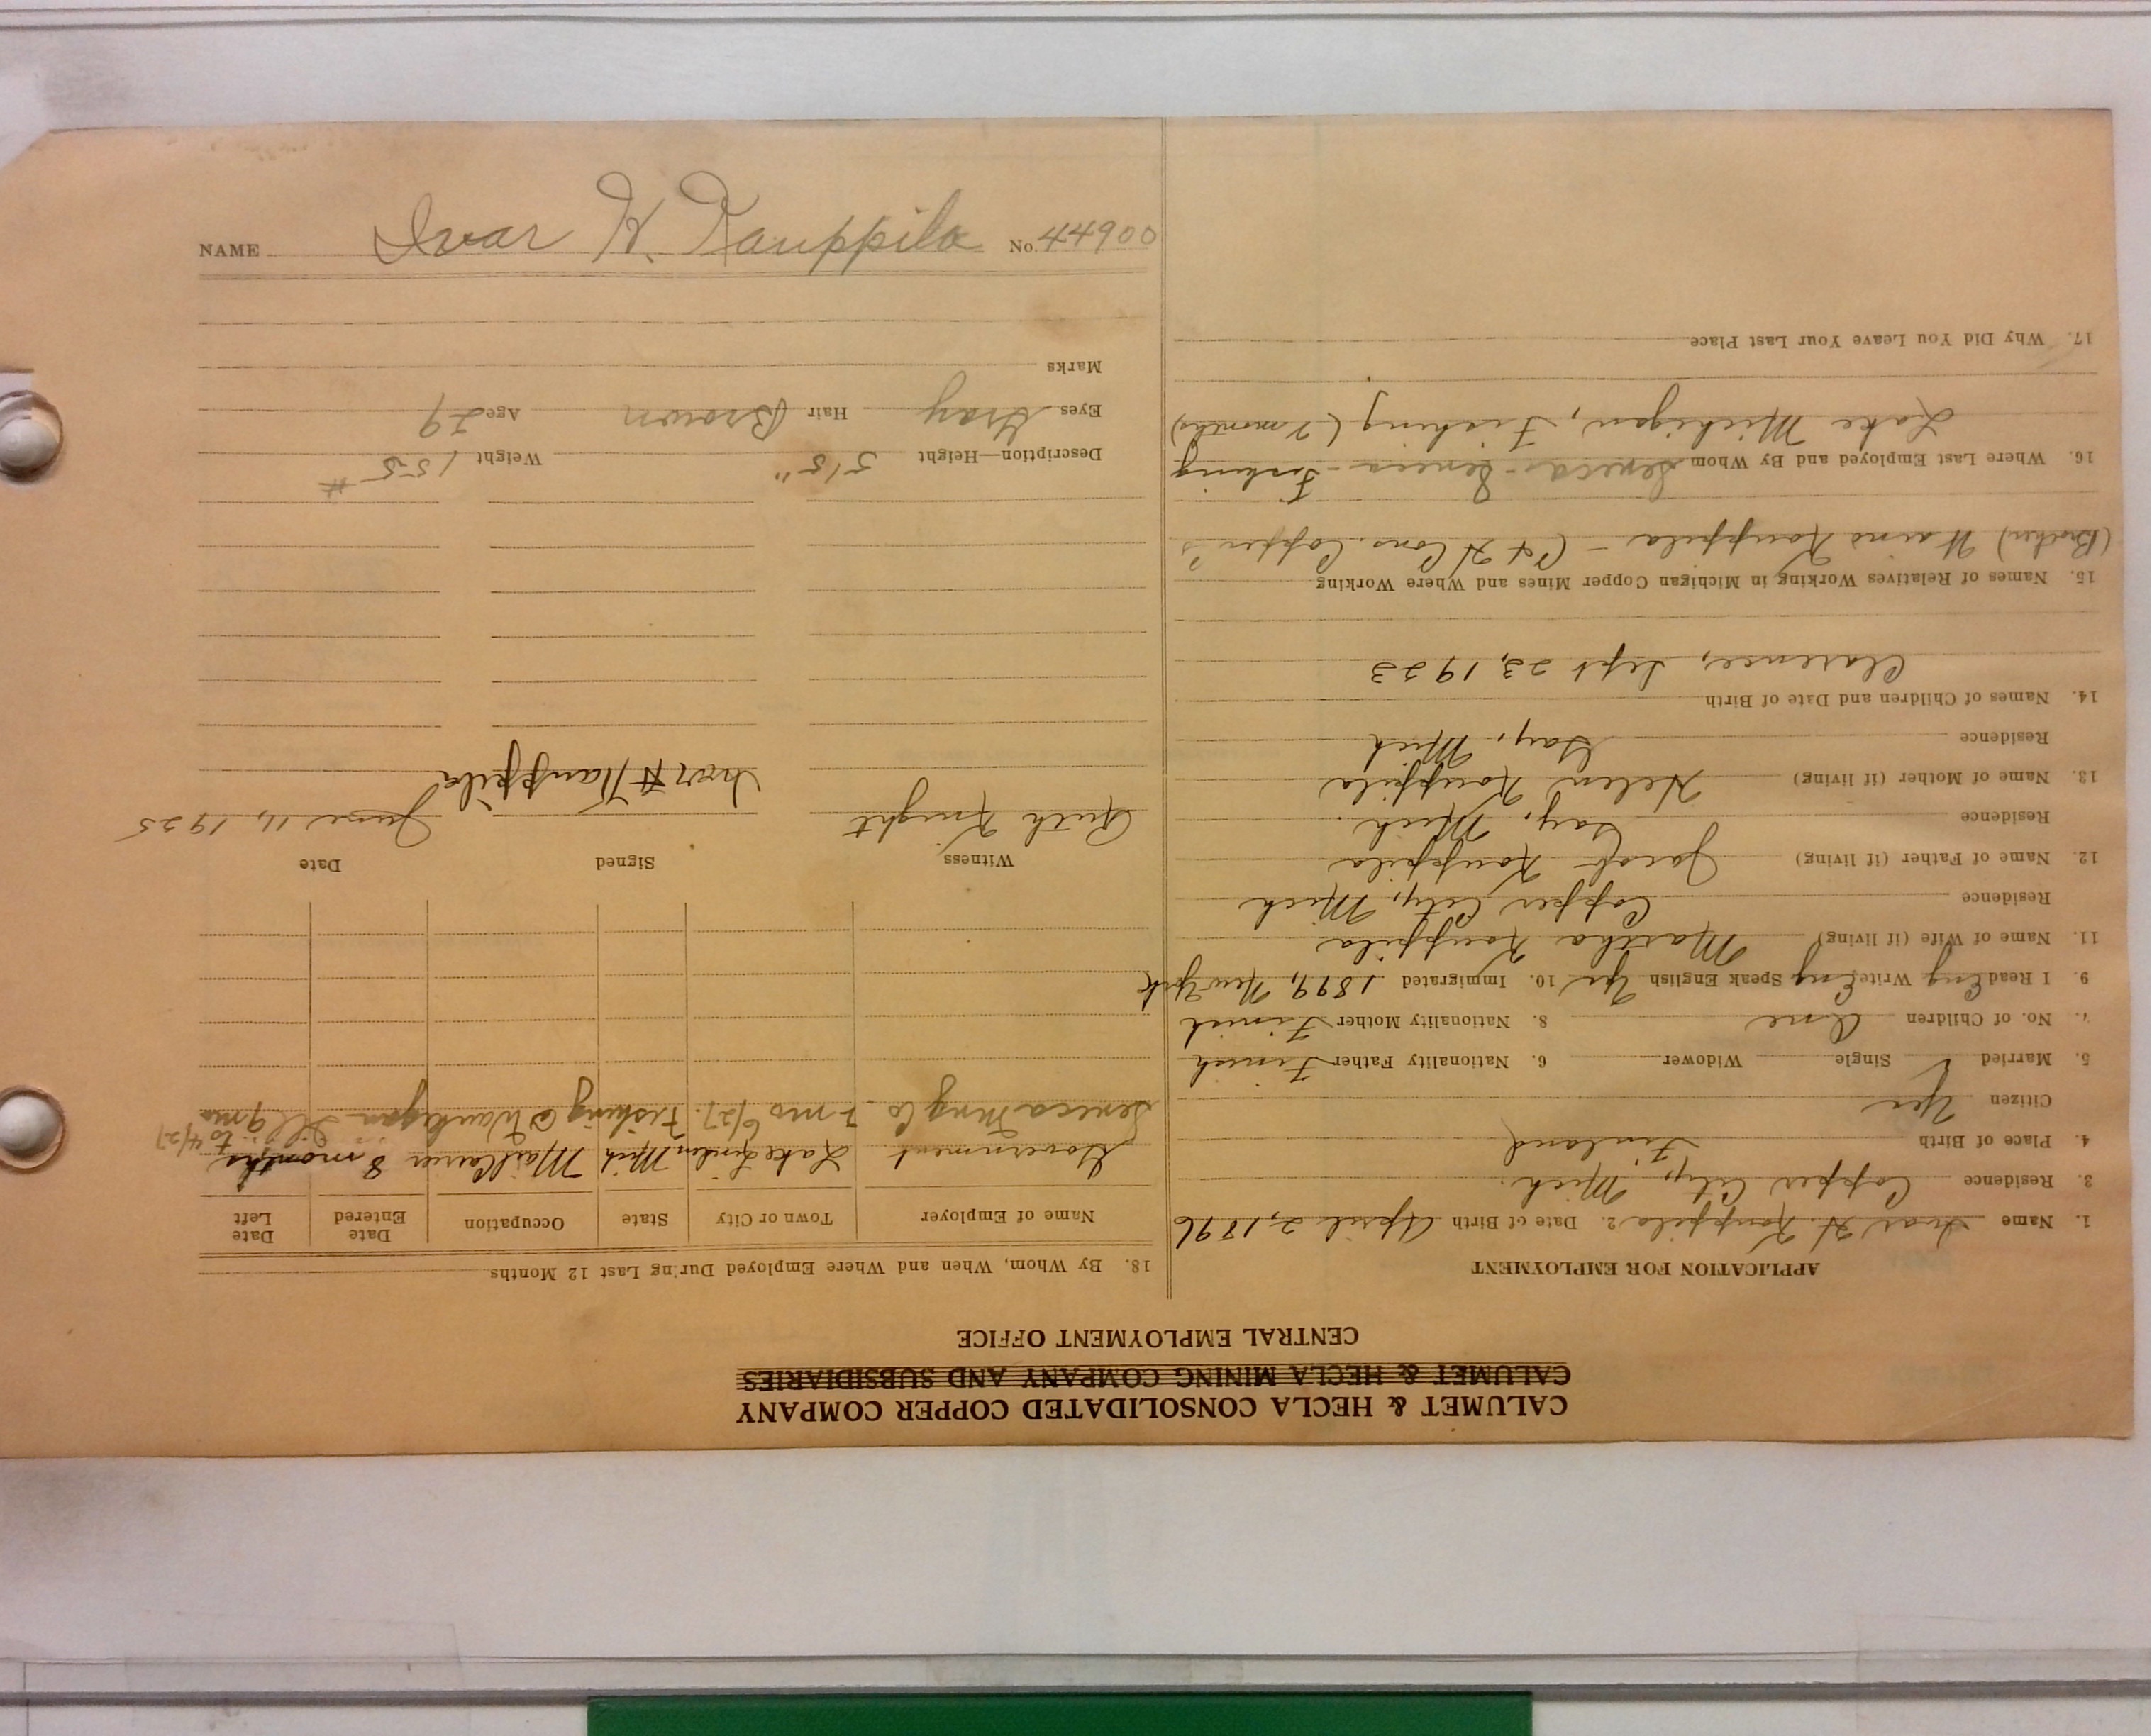 CALUMET & HECLA CONSOLIDATED COPPER COMPANY
CALUMET & HECLA MINING COMPANY AND SUBSIDIARIES
CENTRAL EMPLOYMENT OFFICE
APPLICATION FOR EMPLOYMENT
1. Name Ivar H. Kauppila 2. Date of Birth April 2, 1896
3. Residence Copper City, Mich.
4. Place of Birth Finland
Citizen Yes
5. Married ✓ Single Widower 6. Nationality Father Finish
7. No. of Children One 8. Nationality Mother Finish
9. I Read Eng Write Eng Speak English Yes 10. Immigrated 1899, New York
11. Name of Wife (if living) Martha Kauppila
Residence Copper City, Mich
12. Name of Father (if living) Jacob Kauppila
Residence Gay, Mich.
13. Name of Mother (if living) Helen Kauppila
Residence Gay, Mich
14. Names of Children and Date of Birth
Clarence, Sept 23, 1923
15. Names of Relatives Working in Michigan Copper Mines and Where Working
(Brother) Waino Kauppila - C & H Cons. Copper
16. Where Last Employed and By Whom Seneca - Seneca - Fishing
Lake Michigan, Fishing (7 months)
17. Why Did You Leave Your Last Place
18. By Whom, When and Where Employed During Last 12 Months
Name of Employer Town or City State Occupation Date Entered Date Left
Government Lake Linden Mich Mail Carrier 8 months
Seneca Mng Co. 7 mo 6/27. Fishing @ Waukegan Ill 9 mo to 4/27
Witness Signed Date
Ruth Knight Ivar H Kauppila June 11, 1925
Description—Height 5' 5" Weight 155 #
Eyes Gray Hair Brown Age 29
Marks
NAME Ivar H. Kauppila No. 44900